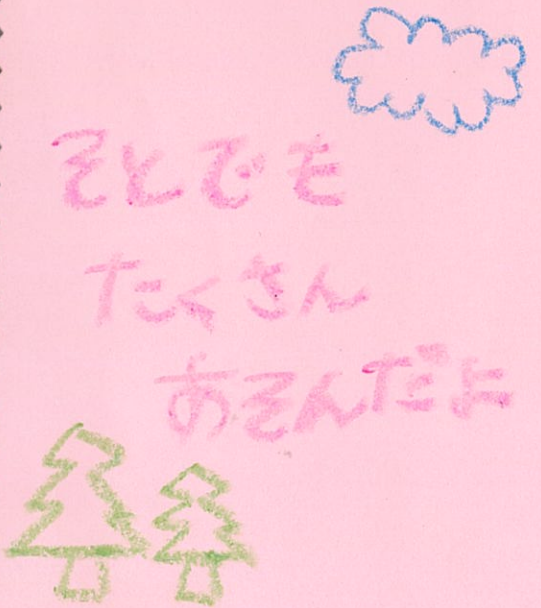 そとでも
たくさん
あそんだよ